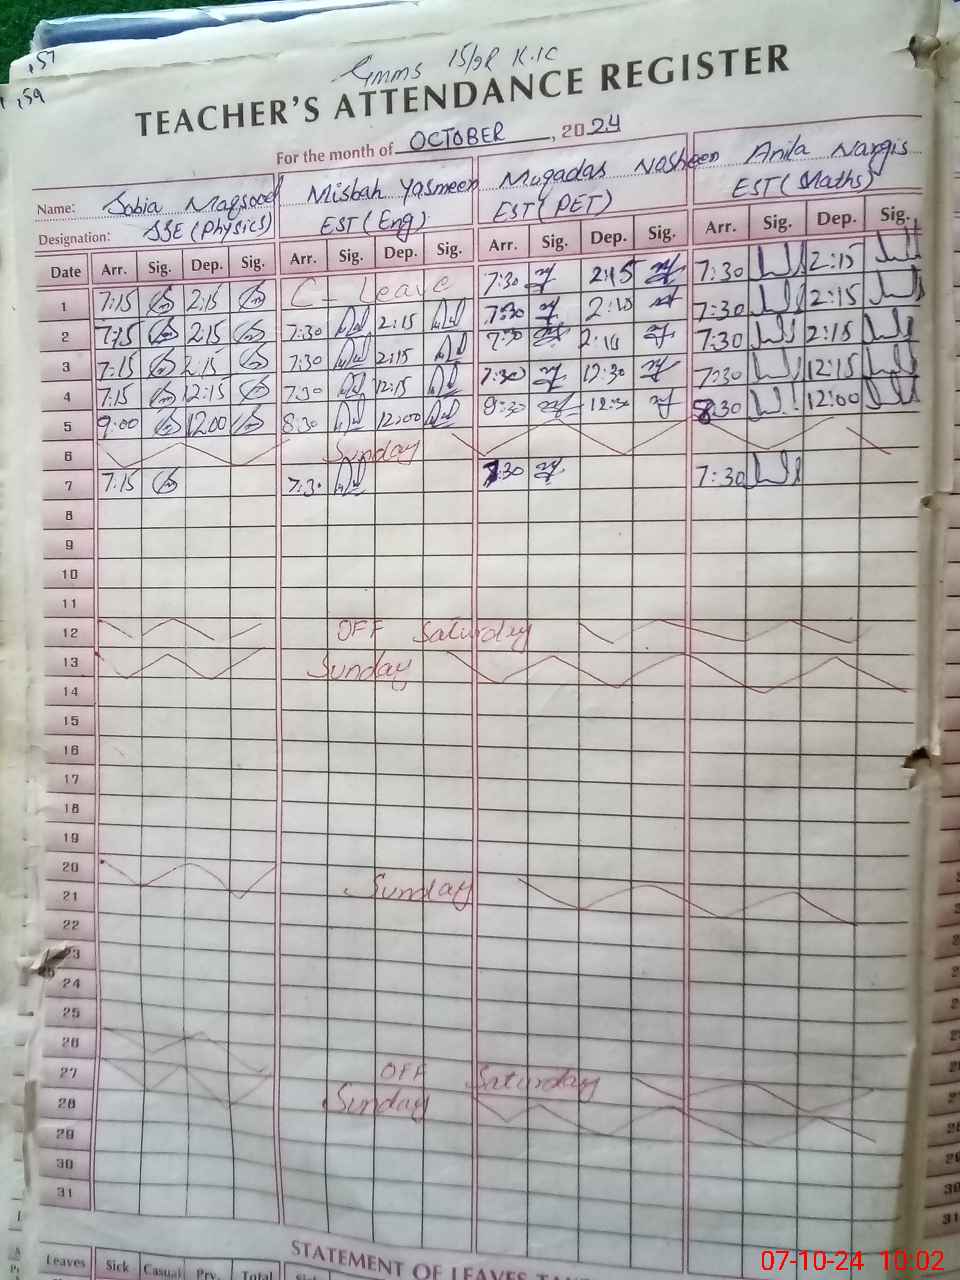 ,57
,59
GMMS 15/9R K.IC
TEACHER'S ATTENDANCE REGISTER
For the month of OCTOBER, 2024
Name: Sobia Maqsood Misbah Yasmeen Muqadas Nosheen Anila Nargis
Designation: SSE (Physics) EST (Eng) EST (PET) EST (Maths)
Date Arr. Sig. Dep. Sig. Arr. Sig. Dep. Sig. Arr. Sig. Dep. Sig. Arr. Sig. Dep. Sig.
1 7:15 2:15 C_ Leave 7:30 2:15 7:30 2:15
2 7:15 2:15 7:30 2:15 7:30 7:30 2:15
3 7:15 2:15 7:30 2:15 7:30 7:30 2:15
4 7:15 12:15 7:30 12:15 7:30 12:30 7:30 12:15
5 9:00 12:00 8:30 12:00 8:30 12:00
6 Sunday
7 7:15 7:30 7:30 7:30
8
9
10
11
12 OFF Saturday
13 Sunday
14
15
16
17
18
19
20 Sunday
21
22
23
24
25
26 OFF Saturday
27 Sunday
28
29
30
31
STATEMENT OF LEAVES
Leaves Sick Casual Prv. Total
07-10-24 10:02